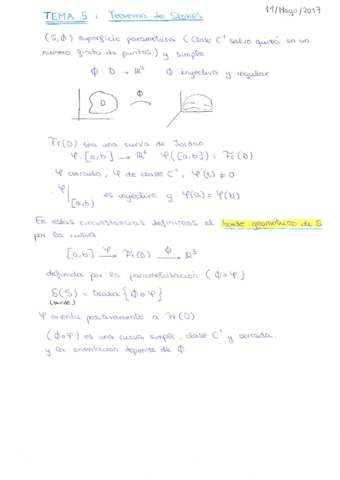 TEMA 5 : Teorema de Stokes
11/Mayo/2017
(S,Φ) superficie paramétrica (Clase C¹ salvo quizá en un
número finito de puntos) y simple
Φ : D → ℝ³ Φ inyectiva y regular
D
Φ
Fr(D) sea una curva de Jordan
φ: [a,b] → ℝ² φ([a,b]) = Fr(D)
φ cerrada, φ de clase C¹, φ'(t) ≠ 0
φ|[a,b) es inyectiva y φ(a) = φ(b)
En estas circunstancias definimos el borde geométrico de S
por la curva
[a,b] —φ→ Fr(D) —Φ→ ℝ³
definida por la parametrización (Φ∘φ)
δ(S) = traza {Φ∘φ}
(borde)
φ orienta positivamente a Fr(D).
(Φ∘φ) es una curva simple, clase C¹ y cerrada.
y la orientación depende de Φ